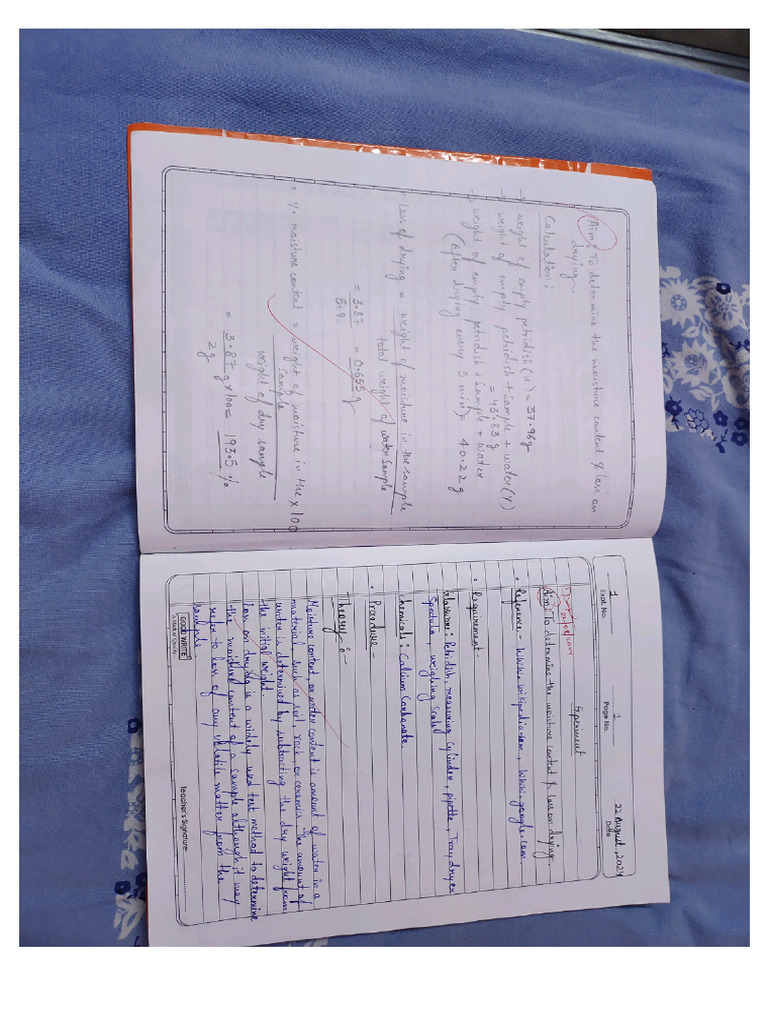 Aim: To determine the moisture content & loss on
drying.
Calculation:
→ weight of empty petridish (x) = 37.96g
→ weight of empty petridish + sample + water (Y)
= 43.83 g
→ weight of empty petridish + sample + water
(After drying every 5 min) = 40.22g
Loss of drying = weight of moisture in the sample
total weight of water sample
= 3.87 = 0.655 g
% moisture content = weight of moisture in the x100
sample
weight of dry sample
= 3.87 g x 100 = 193.5 %
2g
1
Expt. No.
1
Page No.
22 August, 2024
Date
Experiment
Aim: To determine the moisture content & loss on drying.
Reference:- www.wikipedia.com, www.google.com.
Requirement-
Glassware: Petridish, measuring cylinder, pipette, Tray dryer
Spectula, weighing scale
Chemicals: Calcium Carbonate.
Procedure-
Theory:-
Moisture content, or water content is amount of water in a
material, such as soil, rock, or ceramics. The amount of
water is determined by subtracting the dry weight from
the initial weight.
loss on drying is a widely used test method to determine
the moisture content of a sample although it may
refer to loss of any volatile matter from the
sample.
GOOD WRITE
Teacher's Signature: